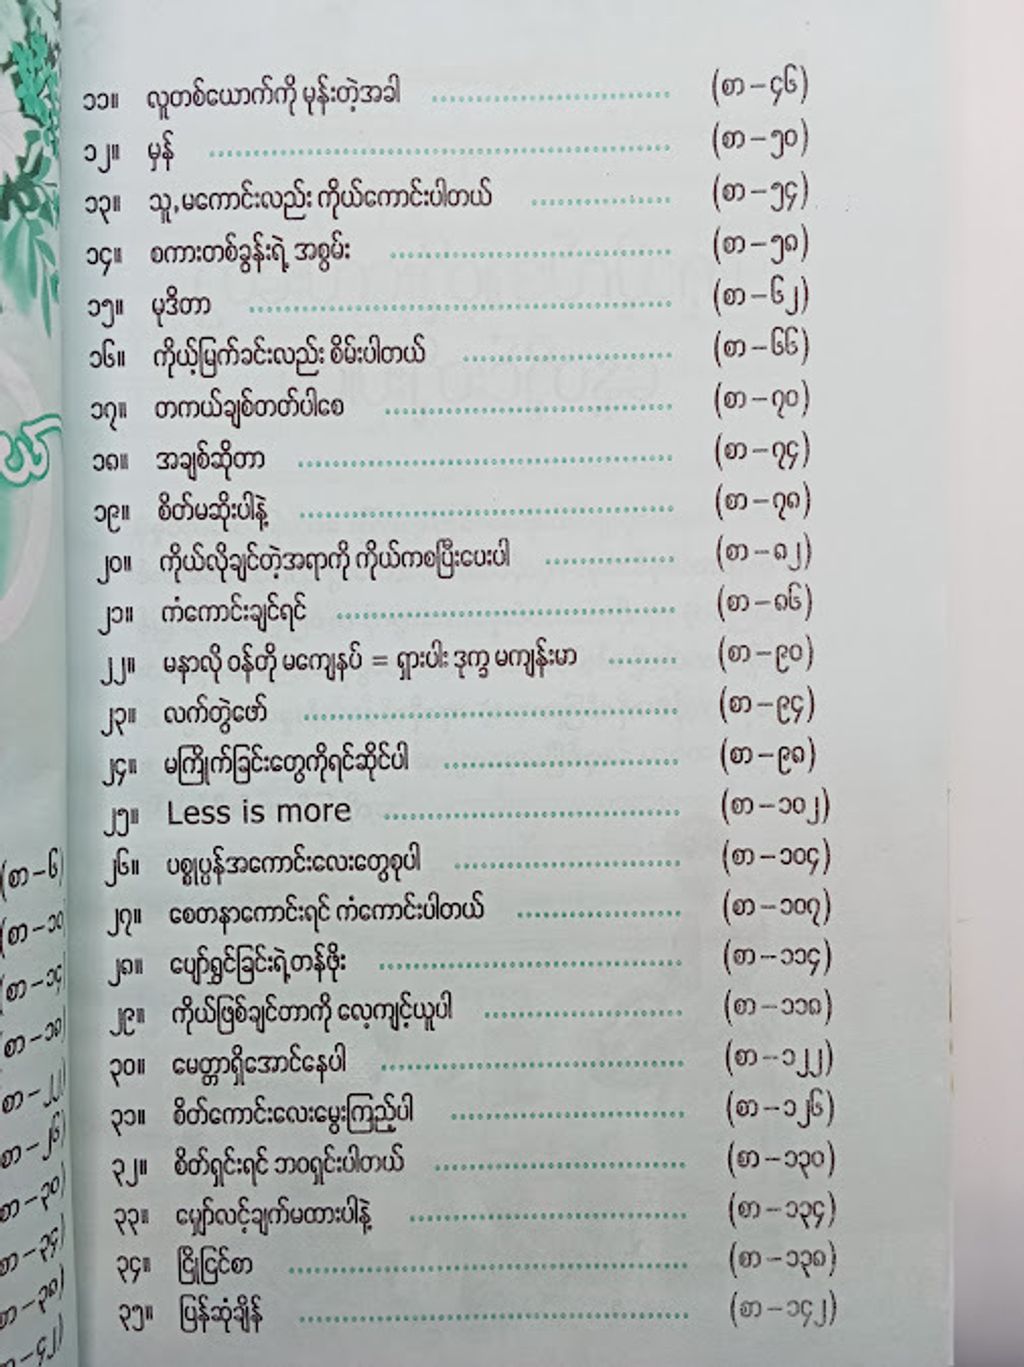 ၁၁။ လူတစ်ယောက်ကို မုန်းတဲ့အခါ (စာ – ၄၆)
၁၂။ မှန် (စာ – ၅၀)
၁၃။ သူ့မကောင်းလည်း ကိုယ်ကောင်းပါတယ် (စာ – ၅၄)
၁၄။ စကားတစ်ခွန်းရဲ့ အစွမ်း (စာ – ၅၈)
၁၅။ မုဒိတာ (စာ – ၆၂)
၁၆။ ကိုယ့်မြက်ခင်းလည်း စိမ်းပါတယ် (စာ – ၆၆)
၁၇။ တကယ်ချစ်တတ်ပါစေ (စာ – ၇၀)
၁၈။ အချစ်ဆိုတာ (စာ – ၇၄)
၁၉။ စိတ်မဆိုးပါနဲ့ (စာ – ၇၈)
၂၀။ ကိုယ်လိုချင်တဲ့အရာကို ကိုယ်ကစပြီးပေးပါ (စာ – ၈၂)
၂၁။ ကံကောင်းချင်ရင် (စာ – ၈၆)
၂၂။ မနာလို ဝန်တို မကျေနပ် = ရှားပါး ဒုက္ခ မကျန်းမာ (စာ – ၉၀)
၂၃။ လက်တွဲဖော် (စာ – ၉၄)
၂၄။ မကြိုက်ခြင်းတွေကိုရင်ဆိုင်ပါ (စာ – ၉၈)
၂၅။ Less is more (စာ – ၁၀၂)
၂၆။ ပစ္စုပ္ပန်အကောင်းလေးတွေစုပါ (စာ – ၁၀၄)
၂၇။ စေတနာကောင်းရင် ကံကောင်းပါတယ် (စာ – ၁၀၇)
၂၈။ ပျော်ရွှင်ခြင်းရဲ့တန်ဖိုး (စာ – ၁၁၄)
၂၉။ ကိုယ်ဖြစ်ချင်တာကို လေ့ကျင့်ယူပါ (စာ – ၁၁၈)
၃၀။ မေတ္တာရှိအောင်နေပါ (စာ – ၁၂၂)
၃၁။ စိတ်ကောင်းလေးမွေးကြည့်ပါ (စာ – ၁၂၆)
၃၂။ စိတ်ရှင်းရင် ဘဝရှင်းပါတယ် (စာ – ၁၃၀)
၃၃။ မျှော်လင့်ချက်မထားပါနဲ့ (စာ – ၁၃၄)
၃၄။ ငြိုငြင်စာ (စာ – ၁၃၈)
၃၅။ ပြန်ဆုံချိန် (စာ – ၁၄၂)
(စာ – ၆)
(စာ – ၁၀
(စာ – ၁၄
(စာ – ၁၈
စာ – ၂၂)
စာ – ၂၆)
စာ – ၃၀)
စာ – ၃၄)
စာ – ၃၈)
– ၄၂)